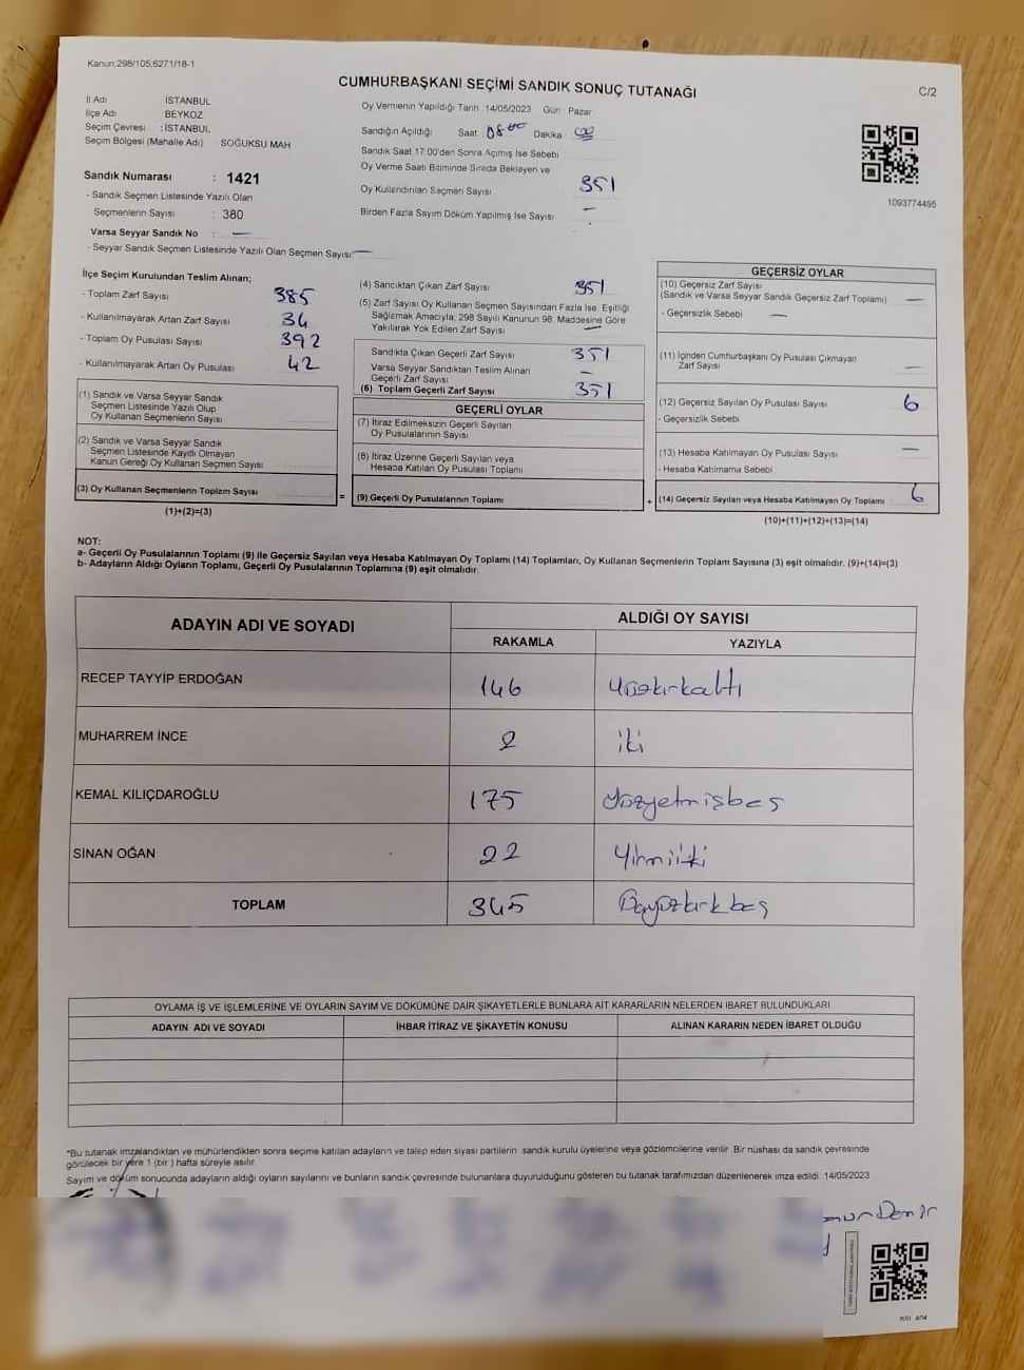 Kanun:298/105;6271/18-1
CUMHURBAŞKANI SEÇİMİ SANDIK SONUÇ TUTANAĞI
C/2
İl Adı İSTANBUL
İlçe Adı BEYKOZ
Seçim Çevresi : İSTANBUL
Seçim Bölgesi (Mahalle Adı) SOĞUKSU MAH
Sandık Numarası : 1421
- Sandık Seçmen Listesinde Yazılı Olan
Seçmenlerin Sayısı : 380
Varsa Seyyar Sandık No : —
- Seyyar Sandık Seçmen Listesinde Yazılı Olan Seçmen Sayısı: —
Oy Vermenin Yapıldığı Tarih : 14/05/2023 Gün : Pazar
Sandığın Açıldığı Saat 08 Dakika
Sandık Saat 17.00'den Sonra Açılmış İse Sebebi
Oy Verme Saati Bitiminde Sırada Bekleyen ve
Oy Kullandırılan Seçmen Sayısı 351
Birden Fazla Sayım Döküm Yapılmış İse Sayısı —
1093774495
İlçe Seçim Kurulundan Teslim Alınan;
- Toplam Zarf Sayısı 385
- Kullanılmayarak Artan Zarf Sayısı 34
- Toplam Oy Pusulası Sayısı 392
- Kullanılmayarak Artan Oy Pusulası 42
(1) Sandık ve Varsa Seyyar Sandık
Seçmen Listesinde Yazılı Olup
Oy Kullanan Seçmenlerin Sayısı
(2) Sandık ve Varsa Seyyar Sandık
Seçmen Listesinde Kayıtlı Olmayan
Kanun Gereği Oy Kullanan Seçmen Sayısı
(3) Oy Kullanan Seçmenlerin Toplam Sayısı
(1)+(2)=(3)
(4) Sandıktan Çıkan Zarf Sayısı 351
(5) Zarf Sayısı Oy Kullanan Seçmen Sayısından Fazla İse, Eşitliği
Sağlamak Amacıyla, 298 Sayılı Kanunun 98. Maddesine Göre
Yakılarak Yok Edilen Zarf Sayısı —
Sandıkta Çıkan Geçerli Zarf Sayısı 351
Varsa Seyyar Sandıktan Teslim Alınan
Geçerli Zarf Sayısı —
(6) Toplam Geçerli Zarf Sayısı 351
GEÇERLİ OYLAR
(7) İtiraz Edilmeksizin Geçerli Sayılan
Oy Pusulalarının Sayısı
(8) İtiraz Üzerine Geçerli Sayılan veya
Hesaba Katılan Oy Pusulası Toplamı
= (9) Geçerli Oy Pusulalarının Toplamı
GEÇERSİZ OYLAR
(10) Geçersiz Zarf Sayısı
(Sandık ve Varsa Seyyar Sandık Geçersiz Zarf Toplamı) —
- Geçersizlik Sebebi —
(11) İçinden Cumhurbaşkanı Oy Pusulası Çıkmayan
Zarf Sayısı —
(12) Geçersiz Sayılan Oy Pusulası Sayısı 6
- Geçersizlik Sebebi
(13) Hesaba Katılmayan Oy Pusulası Sayısı —
- Hesaba Katılmama Sebebi
+ (14) Geçersiz Sayılan veya Hesaba Katılmayan Oy Toplamı 6
(10)+(11)+(12)+(13)=(14)
NOT:
a- Geçerli Oy Pusulalarının Toplamı (9) ile Geçersiz Sayılan veya Hesaba Katılmayan Oy Toplamı (14) Toplamları, Oy Kullanan Seçmenlerin Toplam Sayısına (3) eşit olmalıdır. (9)+(14)=(3)
b- Adayların Aldığı Oyların Toplamı, Geçerli Oy Pusulalarının Toplamına (9) eşit olmalıdır.
ADAYIN ADI VE SOYADI
ALDIĞI OY SAYISI
RAKAMLA YAZIYLA
RECEP TAYYİP ERDOĞAN 146 yüzkırkaltı
MUHARREM İNCE 2 iki
KEMAL KILIÇDAROĞLU 175 yüzyetmişbeş
SİNAN OĞAN 22 Yirmiiki
TOPLAM 345 üçyüzkırkbeş
OYLAMA İŞ VE İŞLEMLERİNE VE OYLARIN SAYIM VE DÖKÜMÜNE DAİR ŞİKAYETLERLE BUNLARA AİT KARARLARIN NELERDEN İBARET BULUNDUKLARI
ADAYIN ADI VE SOYADI İHBAR İTİRAZ VE ŞİKAYETİN KONUSU ALINAN KARARIN NEDEN İBARET OLDUĞU
*Bu tutanak imzalandıktan ve mühürlendikten sonra seçime katılan adayların ve talep eden siyasi partilerin sandık kurulu üyelerine veya gözlemcilerine verilir. Bir nüshası da sandık çevresinde
görülecek bir yere 1 (bir) hafta süreyle asılır.
Sayım ve döküm sonucunda adayların aldığı oyların sayılarını ve bunların sandık çevresinde bulunanlara duyurulduğunu gösteren bu tutanak tarafımızdan düzenlenerek imza edildi. 14/05/2023
Demir